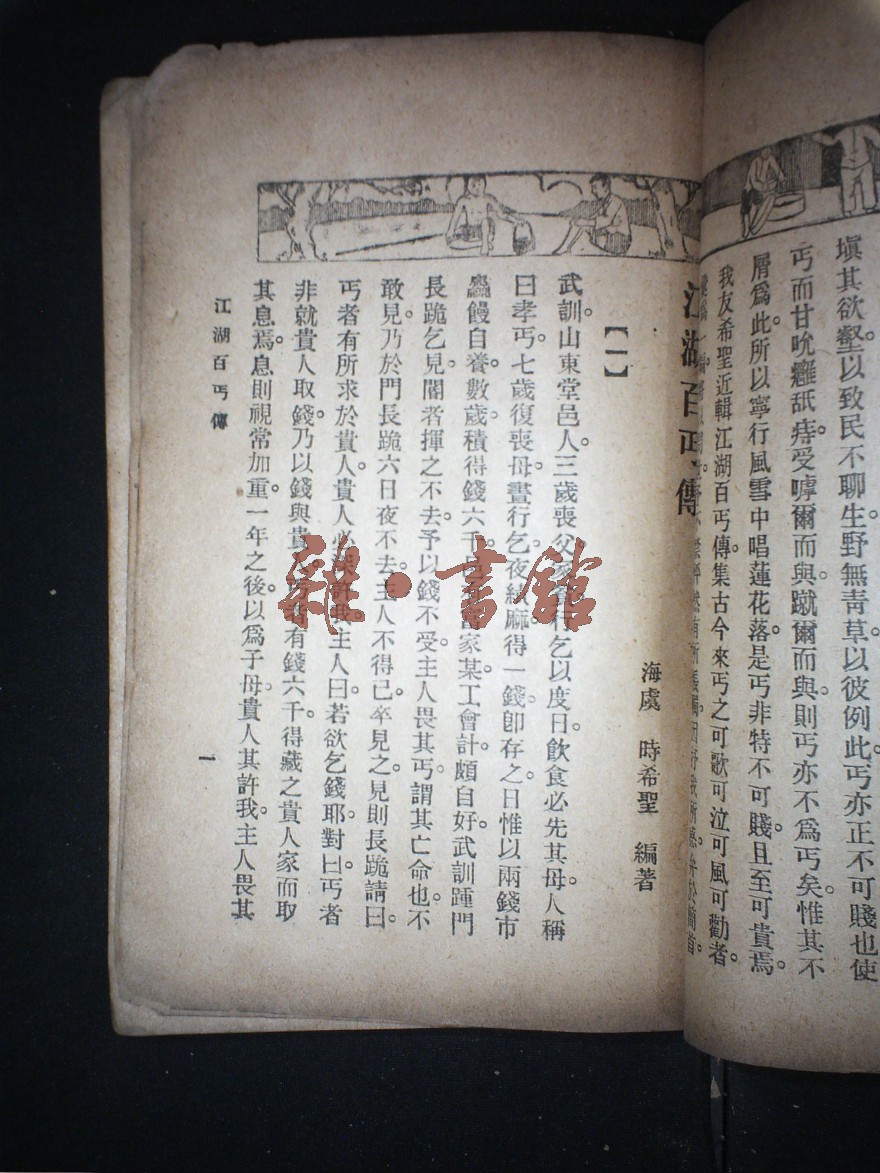 塡其欲壑。以致民不聊生。野無靑草。以彼例此。丐亦正不可賤也。使
丐而甘吮癰舐痔。受嘑爾而與。蹴爾而與。則丐亦不爲丐矣。惟其不
屑爲此。所以寧行風雪中唱蓮花落。是丐非特不可賤。且至可貴焉。
我友希聖近輯江湖百丐傳。集古今來丐之可歌可泣可風可勸者。
江湖百丐傳
海虞 時希聖 編著
【一】
武訓。山東堂邑人。三歲喪父。行乞以度日。飮食必先其母。人稱
曰孝丐。七歲復喪母。晝行乞。夜績麻。得一錢卽存之。日惟以兩錢市
麤饅自養。數歲。積得錢六千。邑富家某。工會計。頗自好。武訓踵門
長跪乞見。閽者揮之不去。予以錢不受。主人畏其丐。謂其亡命也。不
敢見。乃於門長跪六日夜不去。主人不得已。卒見之。見則長跪請曰。
丐者有所求於貴人。貴人必許我。主人曰。若欲乞錢耶。對曰。丐者
非就貴人取錢。乃以錢與貴人。有錢六千。得藏之貴人家而取
其息焉。息則視常加重。一年之後。以爲子母。貴人其許我。主人畏其
江湖百丐傳
一
雜·書館